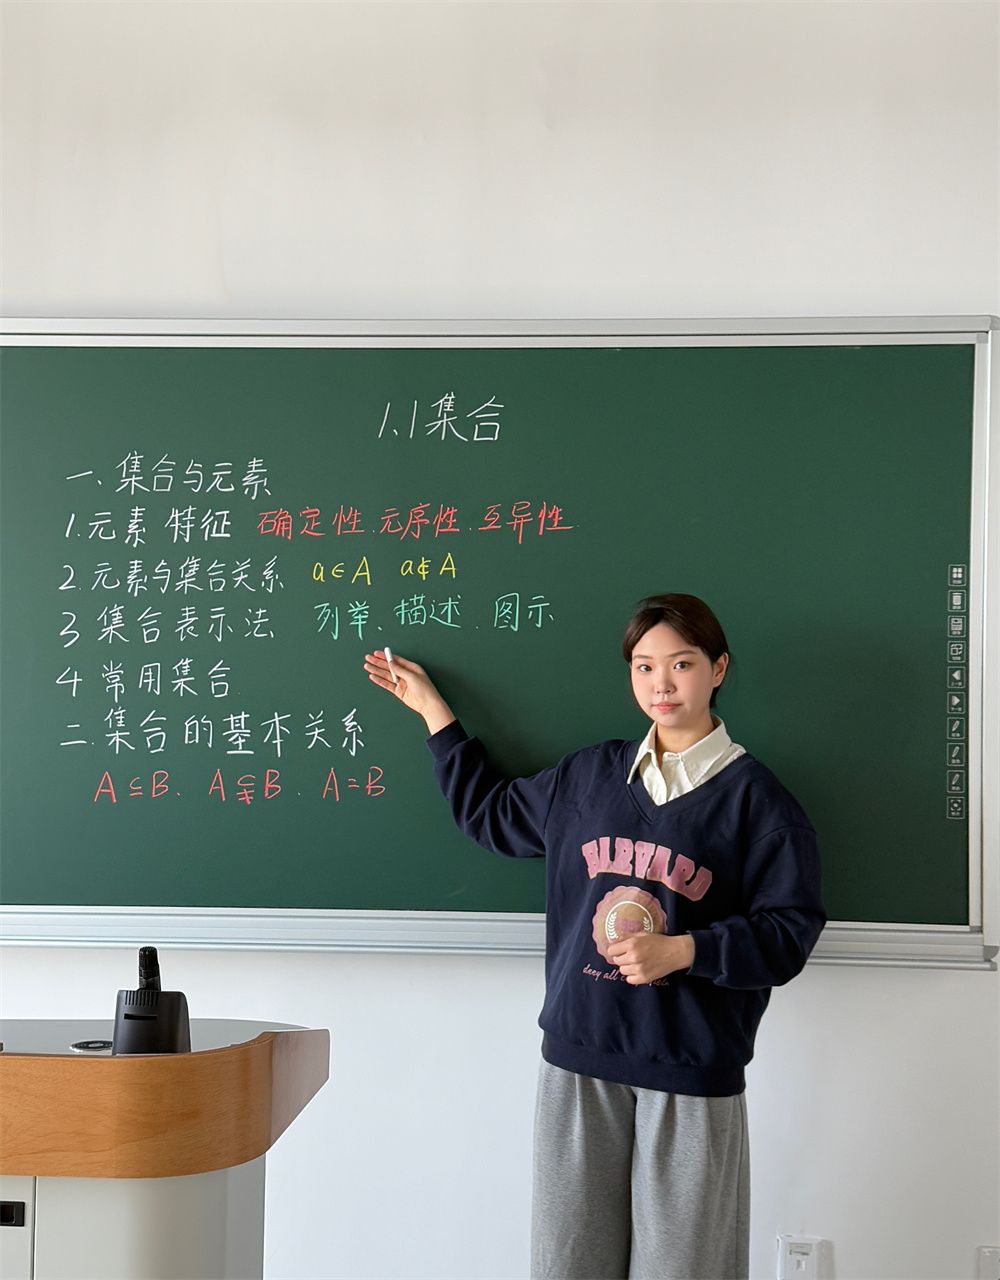 1.1集合
一、集合与元素
1.元素 特征 确定性.无序性.互异性.
2.元素与集合关系 a∈A a∉A
3 集合表示法 列举、描述.图示
4 常用集合.
二.集合的基本关系
A⊆B. A⫋B. A=B
HARVARD